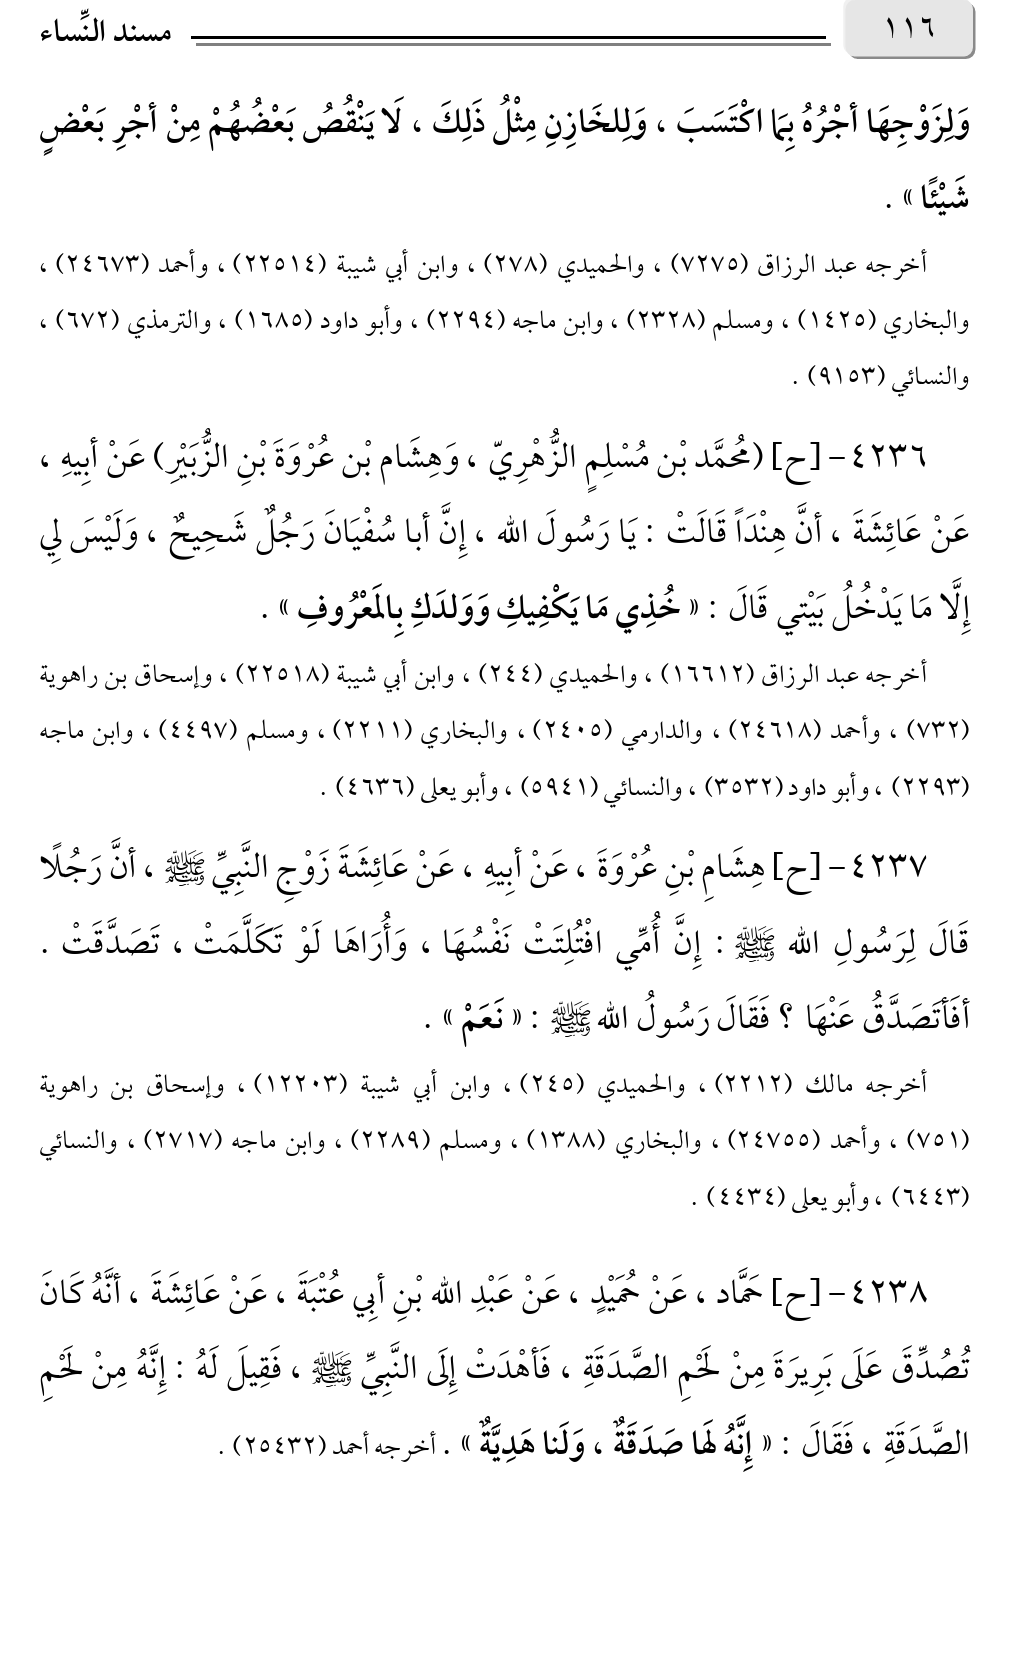 ١١٦ مسند النِّساء
وَلِزَوْجِهَا أجْرُهُ بِمَا اكْتَسَبَ ، وَلِلخَازِنِ مِثْلُ ذَلِكَ ، لَا يَنْقُصُ بَعْضُهُمْ مِنْ أجْرِ بَعْضٍ
شَيْئًا » .
أخرجه عبد الرزاق (٧٢٧٥) ، والحميدي (٢٧٨) ، وابن أبي شيبة (٢٢٥١٤) ، وأحمد (٢٤٦٧٣) ،
والبخاري (١٤٢٥) ، ومسلم (٢٣٢٨) ، وابن ماجه (٢٢٩٤) ، وأبو داود (١٦٨٥) ، والترمذي (٦٧٢) ،
والنسائي (٩١٥٣) .
٤٢٣٦- [ح] (مُحمَّد بْن مُسْلِمٍ الزُّهْرِيّ ، وَهِشَام بْن عُرْوَةَ بْنِ الزُّبَيْرِ) عَنْ أبِيهِ ،
عَنْ عَائِشَةَ ، أنَّ هِنْدَاً قَالَتْ : يَا رَسُولَ الله ، إِنَّ أبا سُفْيَانَ رَجُلٌ شَحِيحٌ ، وَلَيْسَ لِي
إِلَّا مَا يَدْخُلُ بَيْتي قَالَ : « خُذِي مَا يَكْفِيكِ وَوَلدَكِ بِالمَعْرُوفِ » .
أخرجه عبد الرزاق (١٦٦١٢) ، والحميدي (٢٤٤) ، وابن أبي شيبة (٢٢٥١٨) ، وإسحاق بن راهوية
(٧٣٢) ، وأحمد (٢٤٦١٨) ، والدارمي (٢٤٠٥) ، والبخاري (٢٢١١) ، ومسلم (٤٤٩٧) ، وابن ماجه
(٢٢٩٣) ، وأبو داود (٣٥٣٢) ، والنسائي (٥٩٤١) ، وأبو يعلى (٤٦٣٦) .
٤٢٣٧- [ح] هِشَامِ بْنِ عُرْوَةَ ، عَنْ أبِيهِ ، عَنْ عَائِشَةَ زَوْجِ النَّبِيِّ ﷺ ، أنَّ رَجُلًا
قَالَ لِرَسُولِ الله ﷺ : إِنَّ أُمِّي افْتُلِتَتْ نَفْسُهَا ، وَأُرَاهَا لَوْ تَكَلَّمَتْ ، تَصَدَّقَتْ .
أفَأتَصَدَّقُ عَنْهَا ؟ فَقَالَ رَسُولُ الله ﷺ : « نَعَمْ » .
أخرجه مالك (٢٢١٢) ، والحميدي (٢٤٥) ، وابن أبي شيبة (١٢٢٠٣) ، وإسحاق بن راهوية
(٧٥١) ، وأحمد (٢٤٧٥٥) ، والبخاري (١٣٨٨) ، ومسلم (٢٢٨٩) ، وابن ماجه (٢٧١٧) ، والنسائي
(٦٤٤٣) ، وأبو يعلى (٤٤٣٤) .
٤٢٣٨- [ح] حَمَّاد ، عَنْ حُمَيْدٍ ، عَنْ عَبْدِ الله بْنِ أبِي عُتْبَةَ ، عَنْ عَائِشَةَ ، أنَّهُ كَانَ
تُصُدِّقَ عَلَى بَرِيرَةَ مِنْ لَحْمِ الصَّدَقَةِ ، فَأهْدَتْ إِلَى النَّبِيِّ ﷺ ، فَقِيلَ لَهُ : إِنَّهُ مِنْ لَحْمِ
الصَّدَقَةِ ، فَقَالَ : « إِنَّهُ لَها صَدَقَةٌ ، وَلَنا هَدِيَّةٌ » . أخرجه أحمد (٢٥٤٣٢) .